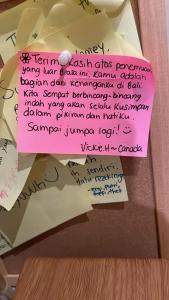 Terima kasih atas penemuan
yang luar biasa ini. Kamu adalah
bagian dari kenanganku di Bali.
Kita sempat berbincang-bincang
indah yang akan selalu kusimpan
dalam pikiran dan hatiku.
Sampai jumpa lagi!
Vickie.H ~ Canada
sendiri.